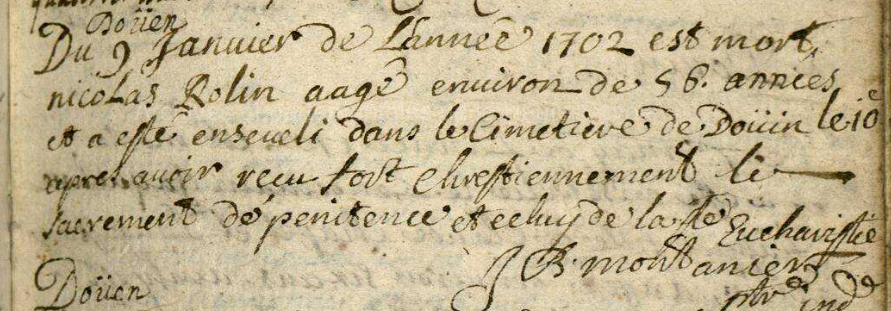 Doüen
Du 9 Janvier de Lannéé 1702 est mort
nicolas Rolin aagé environ de 56. années
et a esté enseveli dans le Cimetiere de Doüin le 10e
apres avoir receu fort Chrestiennement le
sacrement de penitence et celuy de la ste Eucharistie
J B. montanier
Doüen